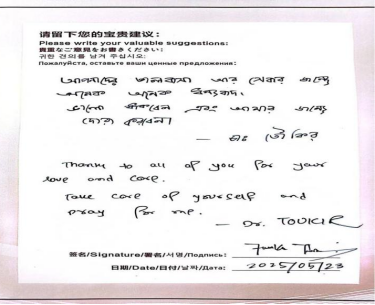 请留下您的宝贵建议：
Please write your valuable suggestions:
貴重なご意見をお書きください：
귀한 건의를 남겨 주십시오:
Пожалуйста, оставьте ваши ценные предложения:
আপনাদের ভালবাসা আর সেবার জন্যে
অনেক অনেক ধন্যবাদ।
ভালো থাকবেন এবং আমার জন্যে
দোয়া করবেন।
— ডাঃ তৌকির
Thanks to all of you for your
love and care.
Take care of yourself and
pray for me.
— Dr. TOUKIR
签名/Signature/署名/서명/Подпись:
日期/Date/日付/날짜/Дата: 2025/05/23